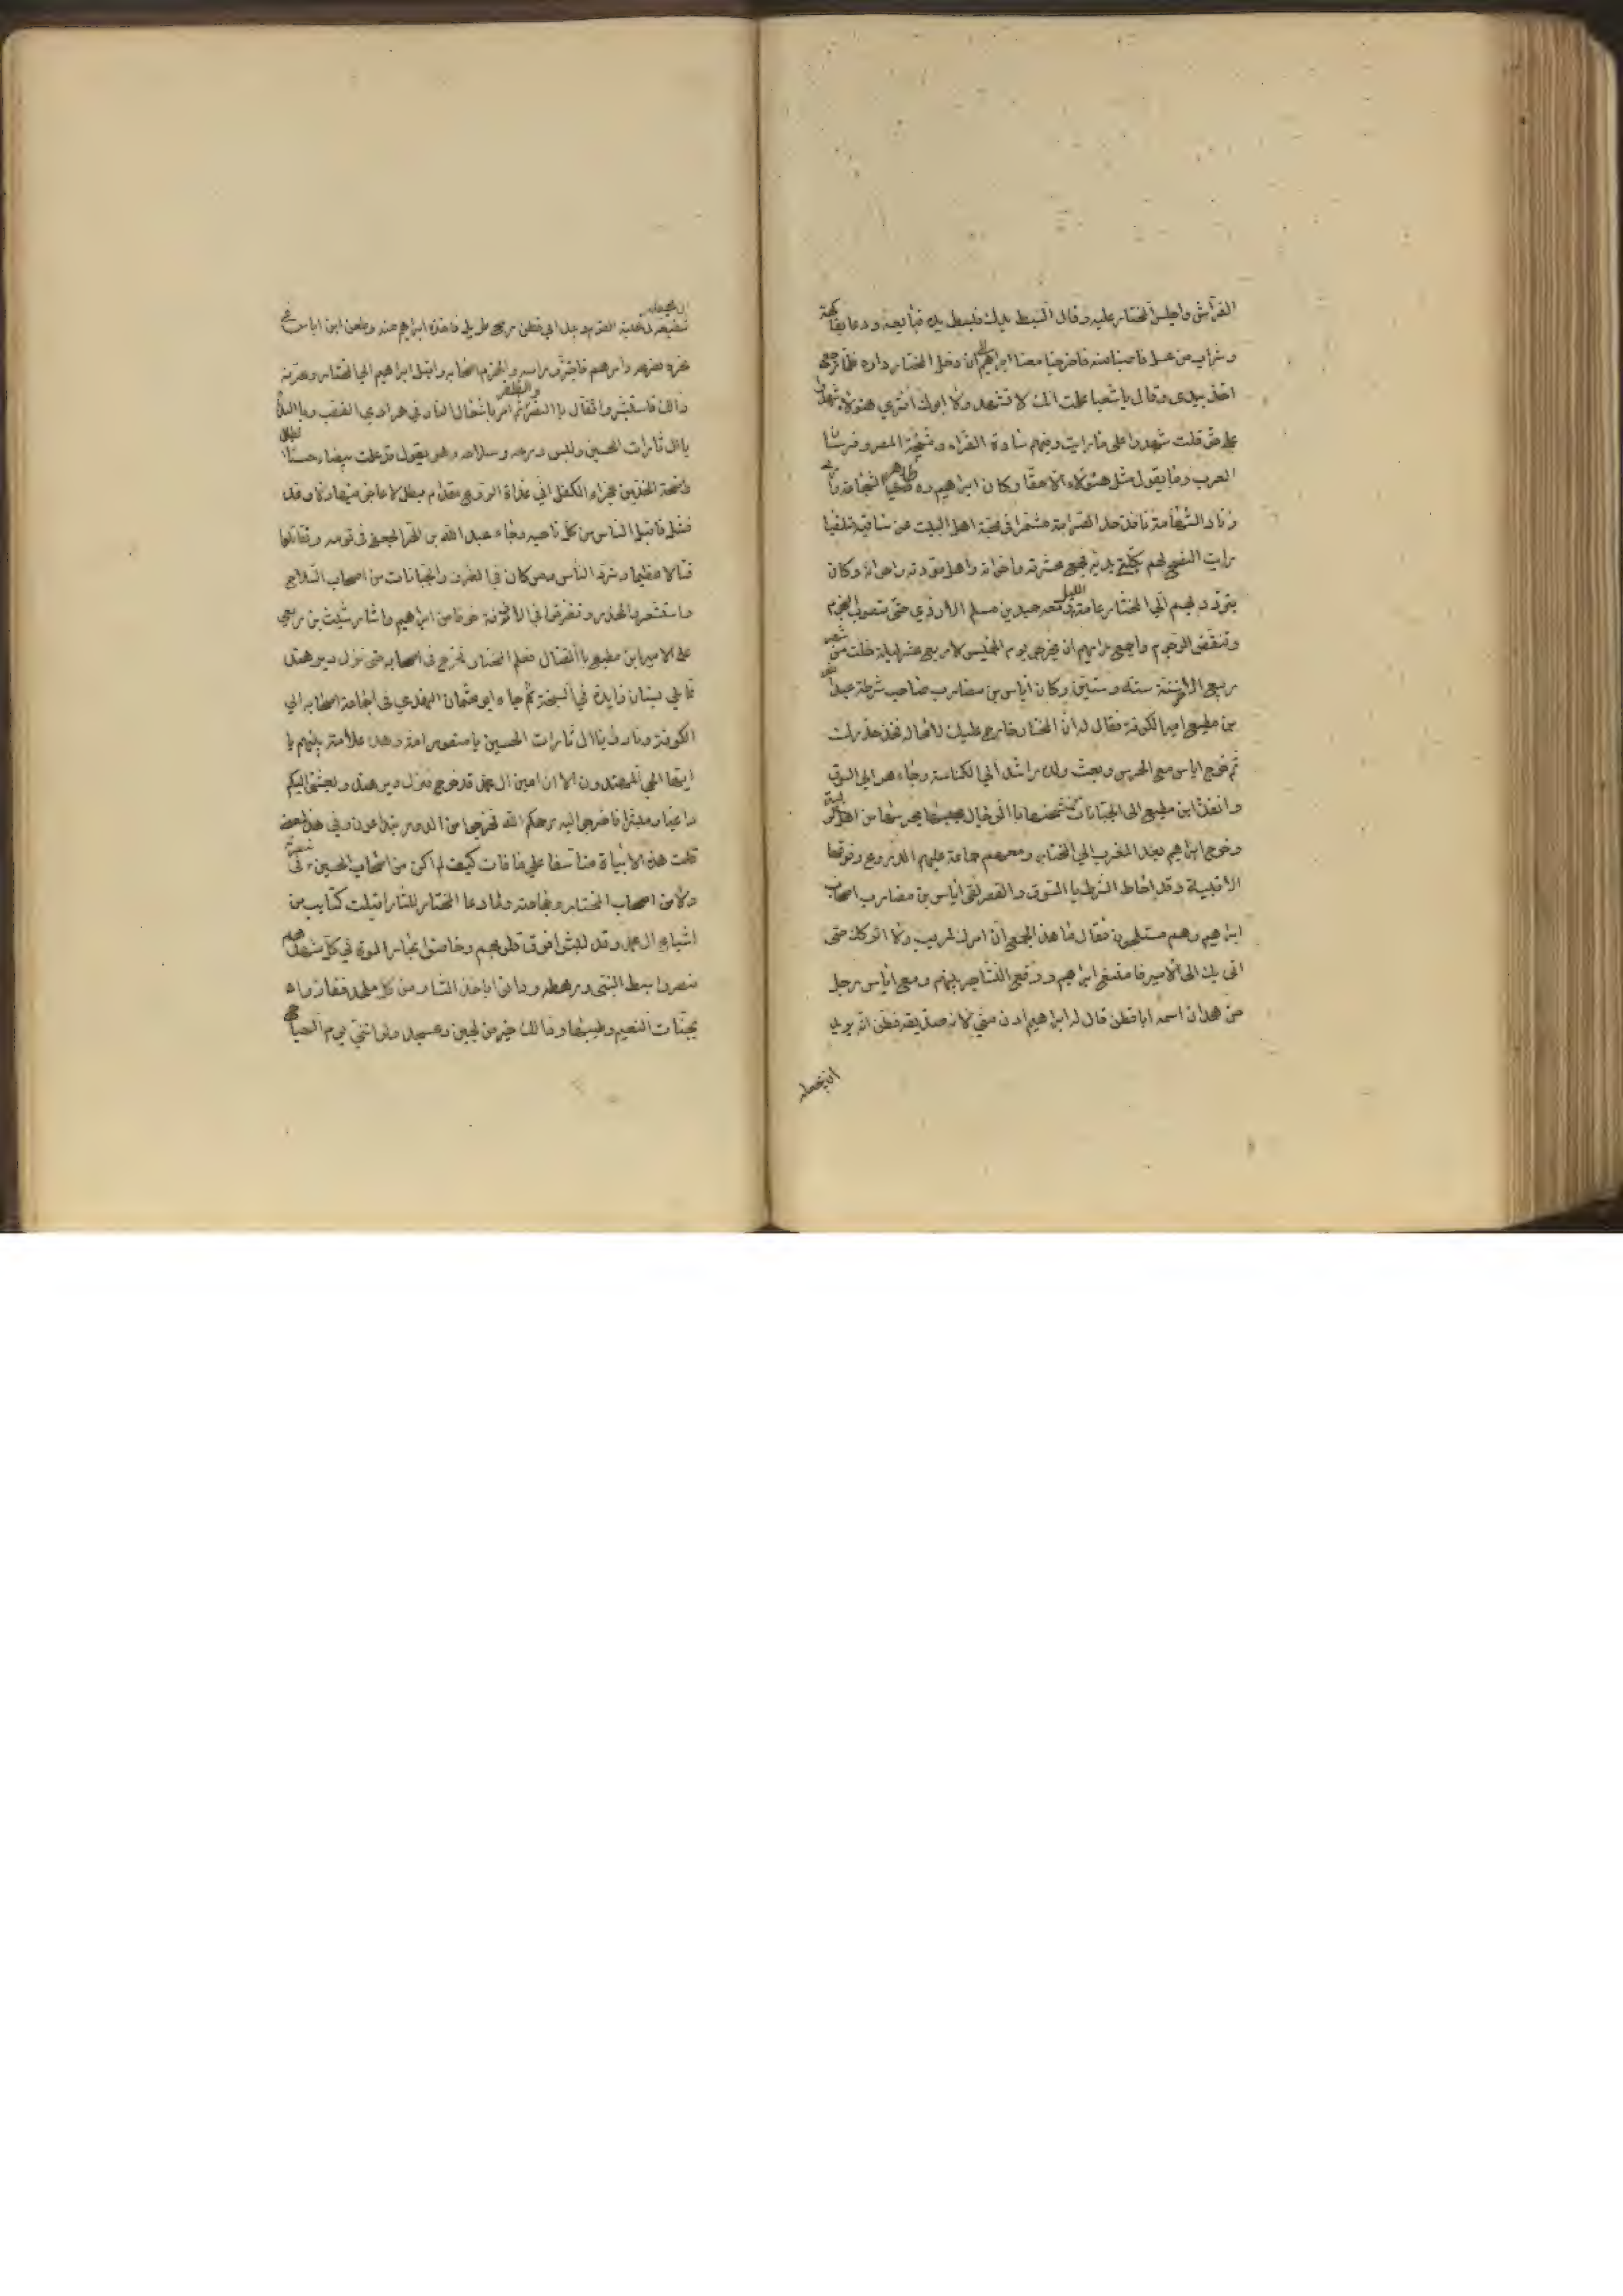 الفراش واجلس المختار عليه وقال ابسط يدك فبسط يده فبايعه ودعا بفاكهة
وشراب من عسل فاصبنا منه فاخرجنا معنا ابراهيم الى ان دخل المختار داره فلما رجع
اخذ بيدى وقال يا شعبي علمت انك لا تشهد ولا ابوك افترى هؤلاء شهدوا
على حق قلت شهدوا على ما رايت وفيهم سادة القراء ومشيخة المصر وفرسان
العرب وما يقول مثل هؤلاء الا حقا وكان ابراهيم ره ظاهر الشجاعة
زناد الشهامة نافذ حد الصرامة مشمرا فى محبة اهل البيت عن ساقيه متلقيا
رايت النصح لهم بكلتي يديه فجمع عشيرته واخوانه واهل مودته واعوانه وكان
يتردد بهم الي المختار عامة الليل ومعه حميد بن مسلم الازدي حتى تصوب النجوم
وتنقض الرجوم واجمع رايهم ان يخرجوا يوم الخميس لاربع عشر ليلة خلت من شهر
ربيع الاخر سنة ستة وستين وكان اياس بن مضارب صاحب شرطة عبد الله
بن مطيع امير الكوفة فقال له ان المختار خارج عليك لا محاله فخذ حذرك
ثم خرج اياس مع الحرس وبعث ولده راشد الي الكناسة وجاء هو الى السوق
وانفذ ابن مطيع الى الجبانات من شحنها بالرجال يحرسها من اهل الريبة
وخرج ابراهيم بعد المغرب الي المختار ومعهم جماعة عليهم الدروع وفوقها
الاقبية وقد احاط الشرط بالسوق والقصر لقى اياس بن مضارب اصحاب
ابراهيم وهم متسلحون فقال ما هذا الجمع ان امرك لمريب ولا اتركك حتى
اتى بك الى الامير فامتنع ابراهيم ووقع التشاجر بينهم ومع اياس رجل
من همدان اسمه ابا قطن قال له ابراهيم ادن مني لانه صديقه فظن انه يريد
ان يجعله
ان يجعله
شفيعه لخلية القوم وبيد ابي قطن رمح طويل فاخذه ابراهيم منه وطعن ابن اياس في
نحره فصرعه وامرهم فاجتزوا راسه وانهزم اصحابه واقبل ابراهيم الي المختار وعرفه
ذالك فاستبشر وتفال بالنصر والظفر ثم امر باشعال النار في هرادي القصب وبالنداء
يا آل ثارات الحسين ولبس درعه وسلاحه وهو يقول قد علمت بيضاء حسناء الطلل
واضحة الخدين عجزاء الكفل اني غداة الروع مقدام بطل لا عاجز فيها ولا وغد
فشل فاقبل الناس من كل ناحيه وجاء عبد الله بن الحر الجعفي في قومه وتقاتلوا
قتالا عظيما وشرد الناس ومن كان في الطرق والجبانات من اصحاب السلاح
واستشعروا الحذر وتفرقوا في الازقة خوفا من ابراهيم واشار شبث بن ربعي
على الامير ابن مطيع بالقتال فعلم المختار فخرج في اصحابه حتى نزل دير هند
مما يلي بستان زايدة في السبخة ثم جاء ابو عثمان النهدي في جماعة اصحابه الي
الكوفة ونادوا يا آل ثارات الحسين يا منصور امة وهذه علامتر بينهم يا
ايها الحي المهتدون الا ان امين آل محمد قد خرج فنزل دير هند وبعثني اليكم
داعيا ومبشرا فاخرجوا اليه رحمكم الله فخرجوا من الدور يتداعون وفي هذا المعنى
قلت هذه الابيات متاسفا على ما فات كيف لم اكن من اصحاب الحسين ع في نصرته
ولا من اصحاب المختار وجماعته ولما دعا المختار للثار اقبلت كتايب من
اشياع آل محمد وقد لبسوا فوق قلوبهم وخاضوا بحار الموت في كل مشهد هم
نصروا سبط النبي ورهطه ودانوا باخذ الثار من كل ملحد ففازوا
بجنات النعيم وطيبها وذالك خير من لجين وعسجد ولو انني يوم الهياج